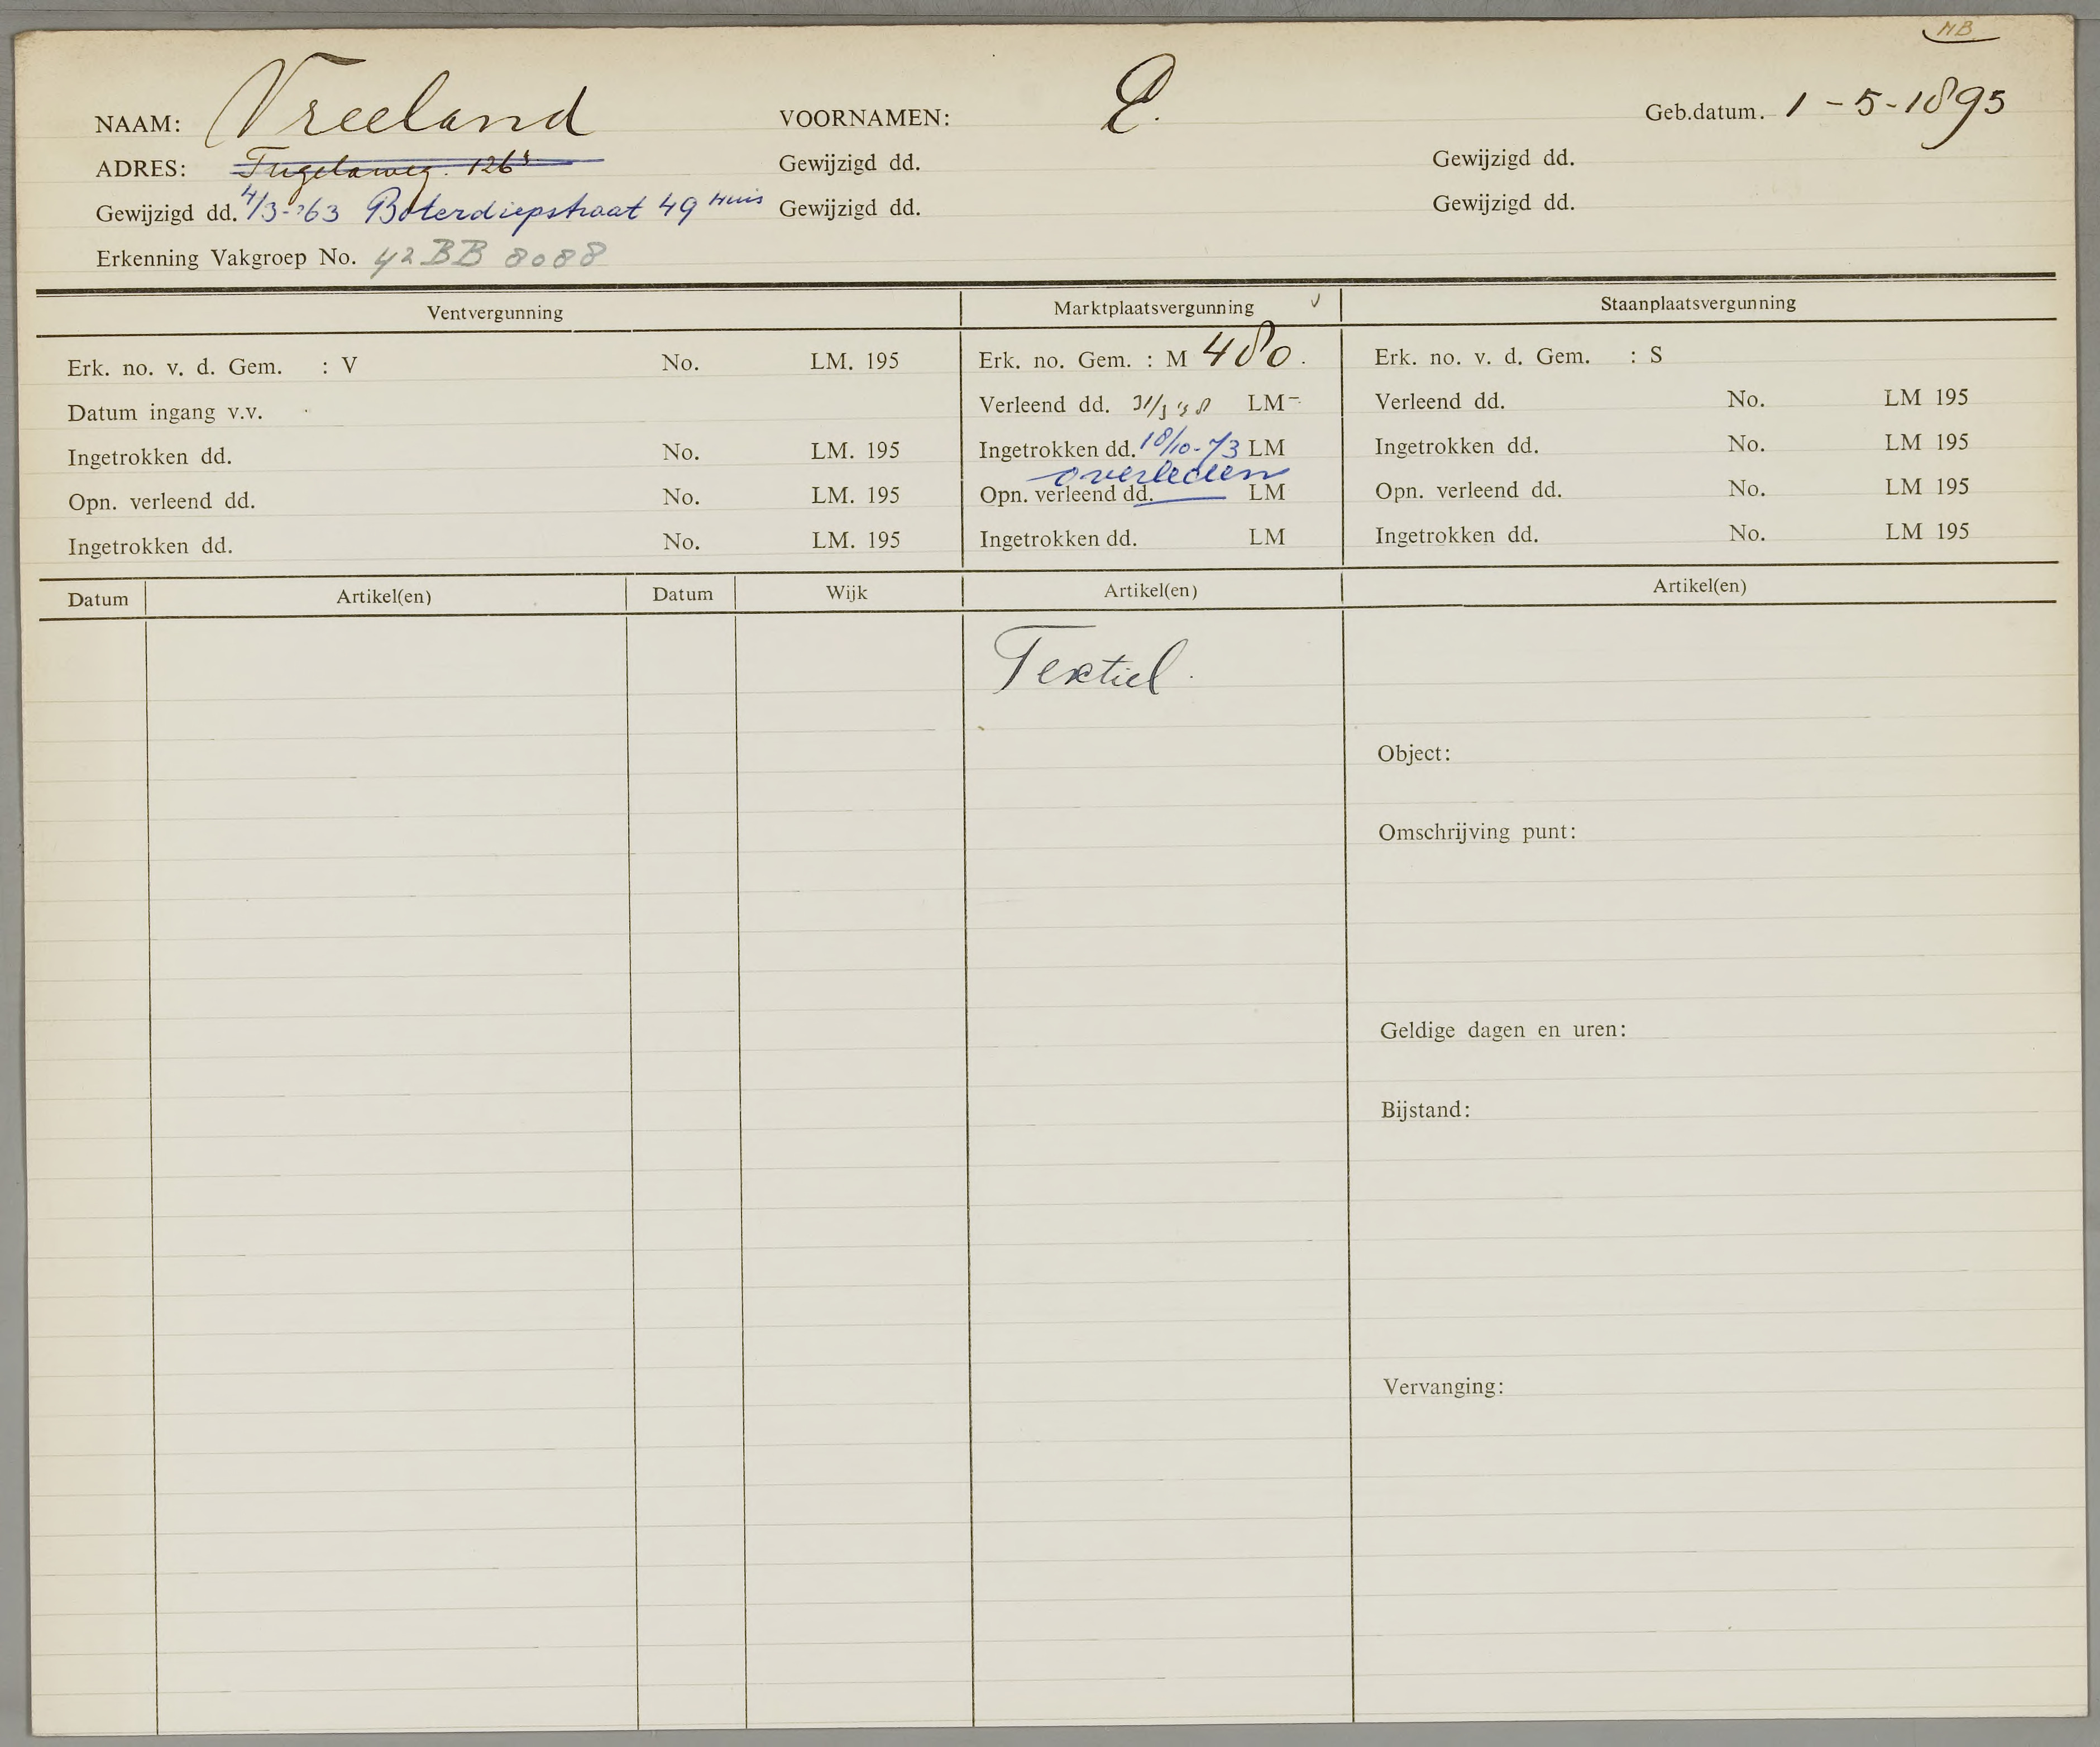 MB
NAAM: Vreeland VOORNAMEN: E. Geb.datum. 1-5-1895
ADRES: Tugelaweg. 126 Gewijzigd dd. Gewijzigd dd.
Gewijzigd dd. 4/3-'63 Boterdiepstraat 49 Huis Gewijzigd dd. Gewijzigd dd.
Erkenning Vakgroep No. 42 BB 8088
Ventvergunning Marktplaatsvergunning Staanplaatsvergunning
Erk. no. v. d. Gem. : V No. LM. 195 Erk. no. Gem. : M 480. Erk. no. v. d. Gem. : S
Datum ingang v.v. Verleend dd. LM- Verleend dd. No. LM 195
Ingetrokken dd. No. LM. 195 Ingetrokken dd. 18/10-73 LM Ingetrokken dd. No. LM 195
overleden
Opn. verleend dd. No. LM. 195 Opn. verleend dd. LM Opn. verleend dd. No. LM 195
Ingetrokken dd. No. LM. 195 Ingetrokken dd. LM Ingetrokken dd. No. LM 195
Datum Artikel(en) Datum Wijk Artikel(en) Artikel(en)
Textiel.
Object:
Omschrijving punt:
Geldige dagen en uren:
Bijstand:
Vervanging: